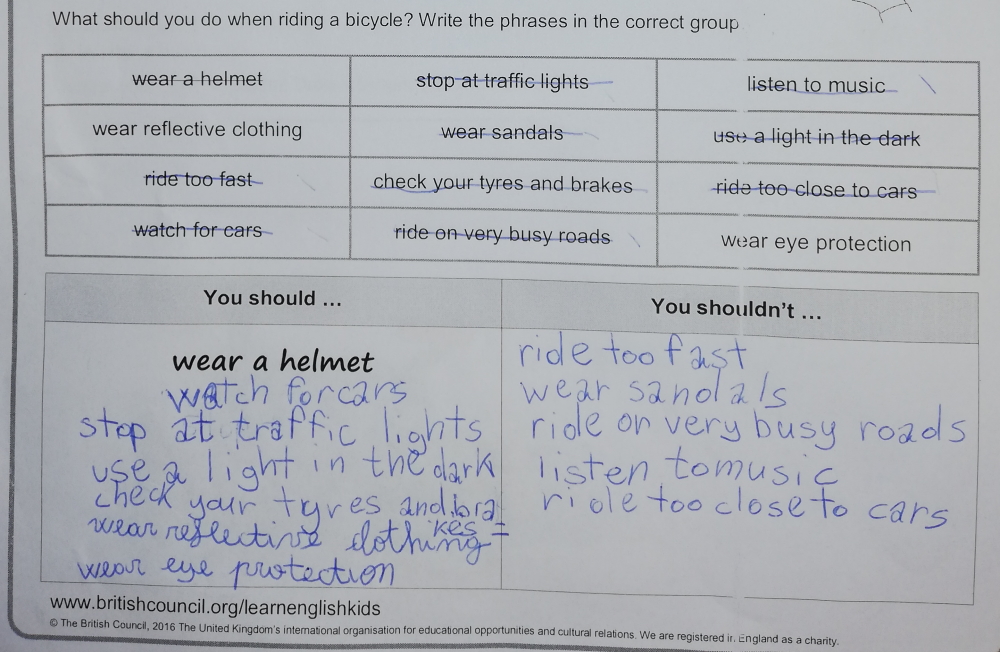 What should you do when riding a bicycle? Write the phrases in the correct group
wear a helmet stop at traffic lights listen to music
wear reflective clothing wear sandals use a light in the dark
ride too fast check your tyres and brakes ride too close to cars
watch for cars ride on very busy roads wear eye protection
You should ... You shouldn't ...
wear a helmet
watch for cars
stop at traffic lights
use a light in the dark
check your tyres and bra
kes =
wear reflective clothing
wear eye protection
ride too fast
wear sandals
ride on very busy roads
listen to music
ride too close to cars
www.britishcouncil.org/learnenglishkids
© The British Council, 2016 The United Kingdom's international organisation for educational opportunities and cultural relations. We are registered in England as a charity.